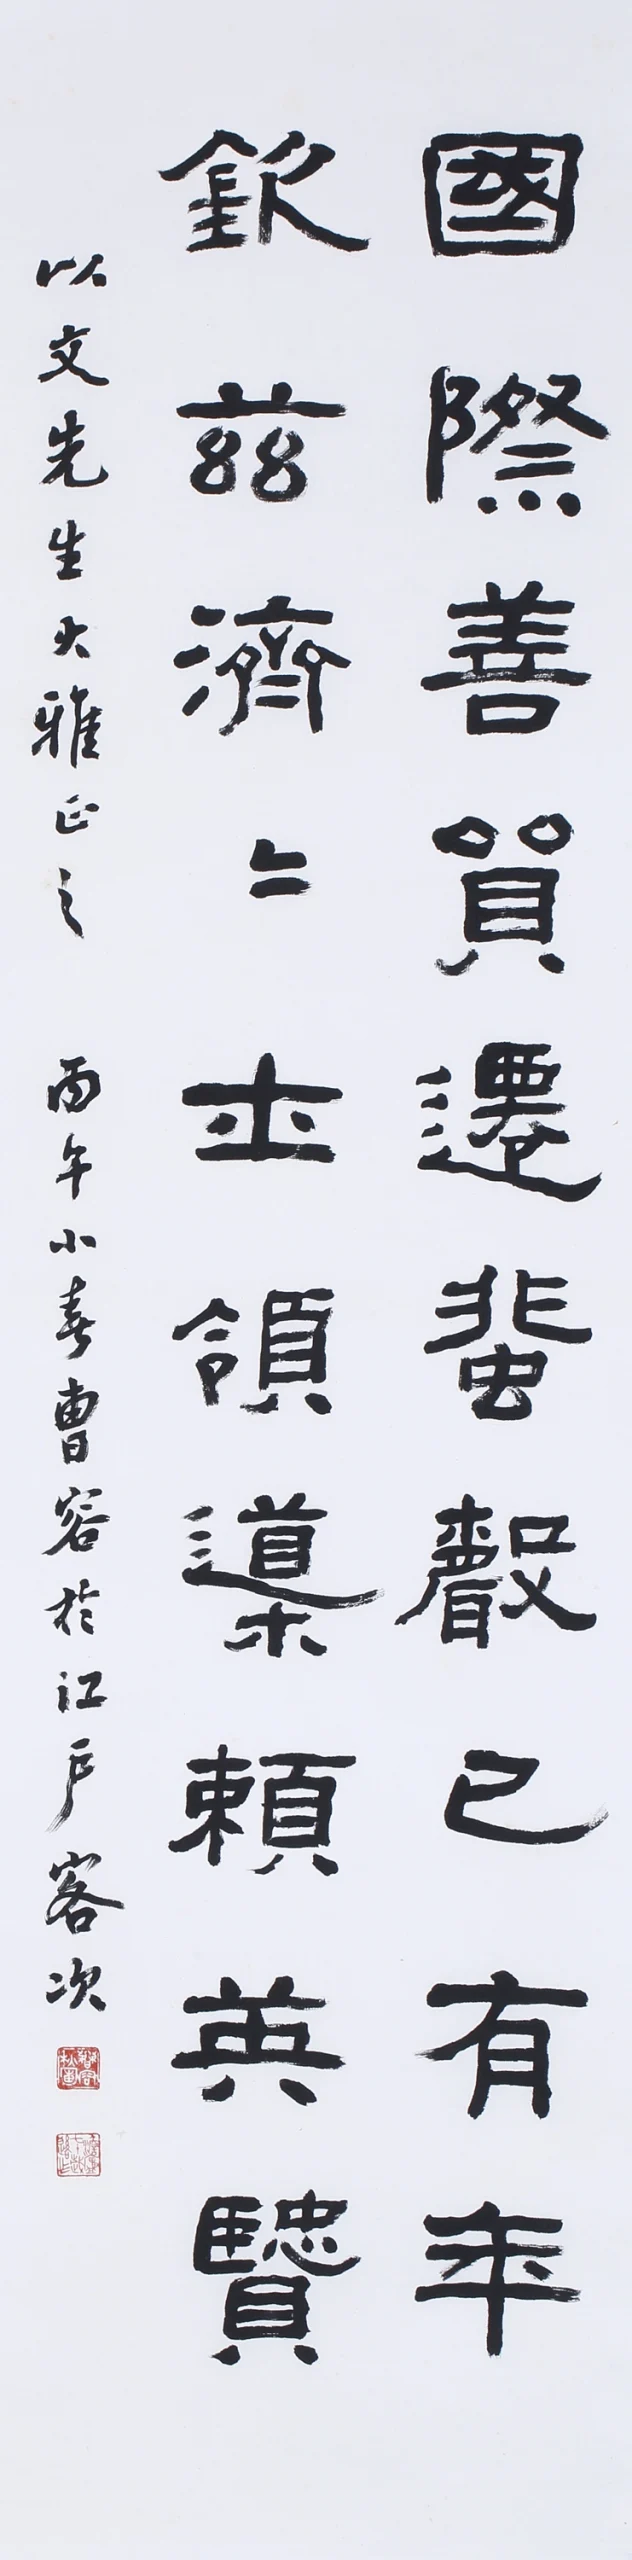 國際善貿遷蜚聲已有年
欽茲濟〻士領導賴英賢
以文先生大雅正之 丙午小春曹容於江戶客次